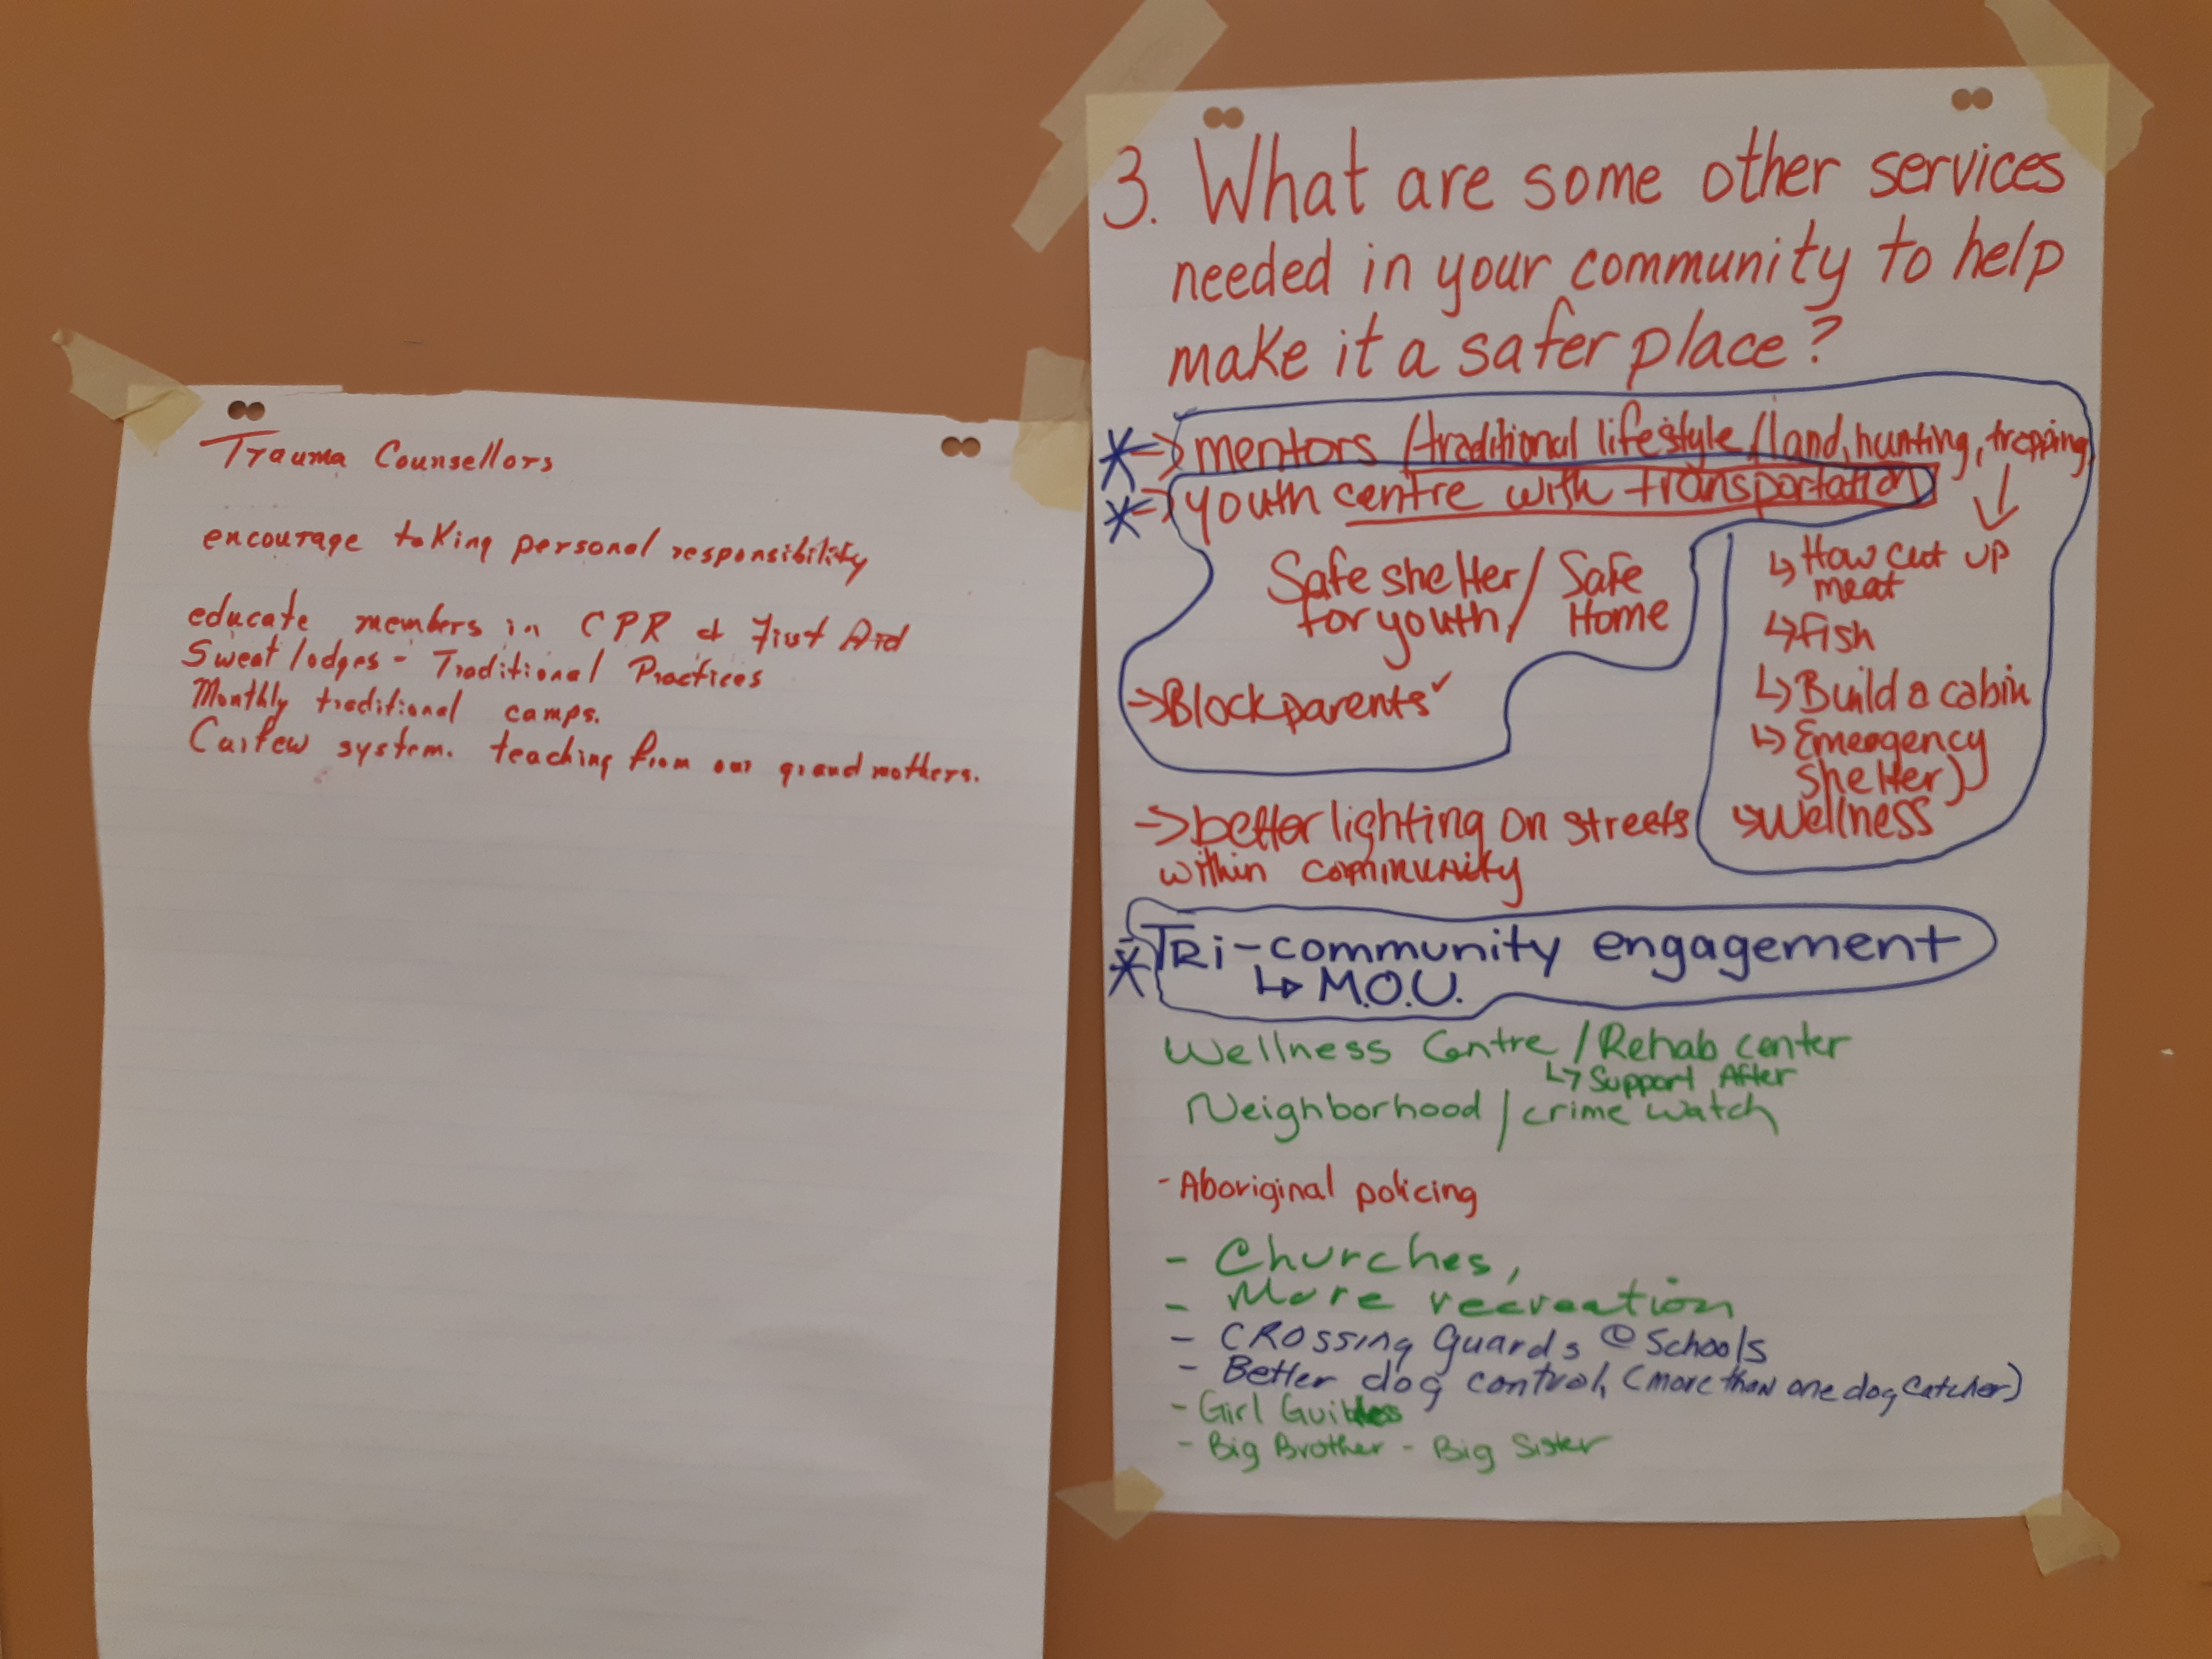 Trauma Counsellors
encourage taking personal responsibility
educate members in CPR & First Aid
Sweat lodges - Traditional Practices
Monthly traditional camps.
Curfew system. teaching from our grandmothers.
3. What are some other services
needed in your community to help
make it a safer place?
* → mentors / traditional lifestyle / land, hunting, trapping
* → youth centre with transportation
Safe shelter / Safe
for youth / Home
→ Block parents ✓
↳ How cut up
meat
↳ fish
↳ Build a cabin
↳ Emergency
shelter)
↳ Wellness
→ better lighting on streets
within community
* TRi-community engagement
↳ M.O.U.
Wellness Centre / Rehab center
↳ Support After
Neighborhood / crime watch
- Aboriginal policing
- Churches,
- More recreation
- CROSSING Guards @ Schools
- Better dog control, (more than one dog catcher)
- Girl Guides
- Big Brother - Big Sister